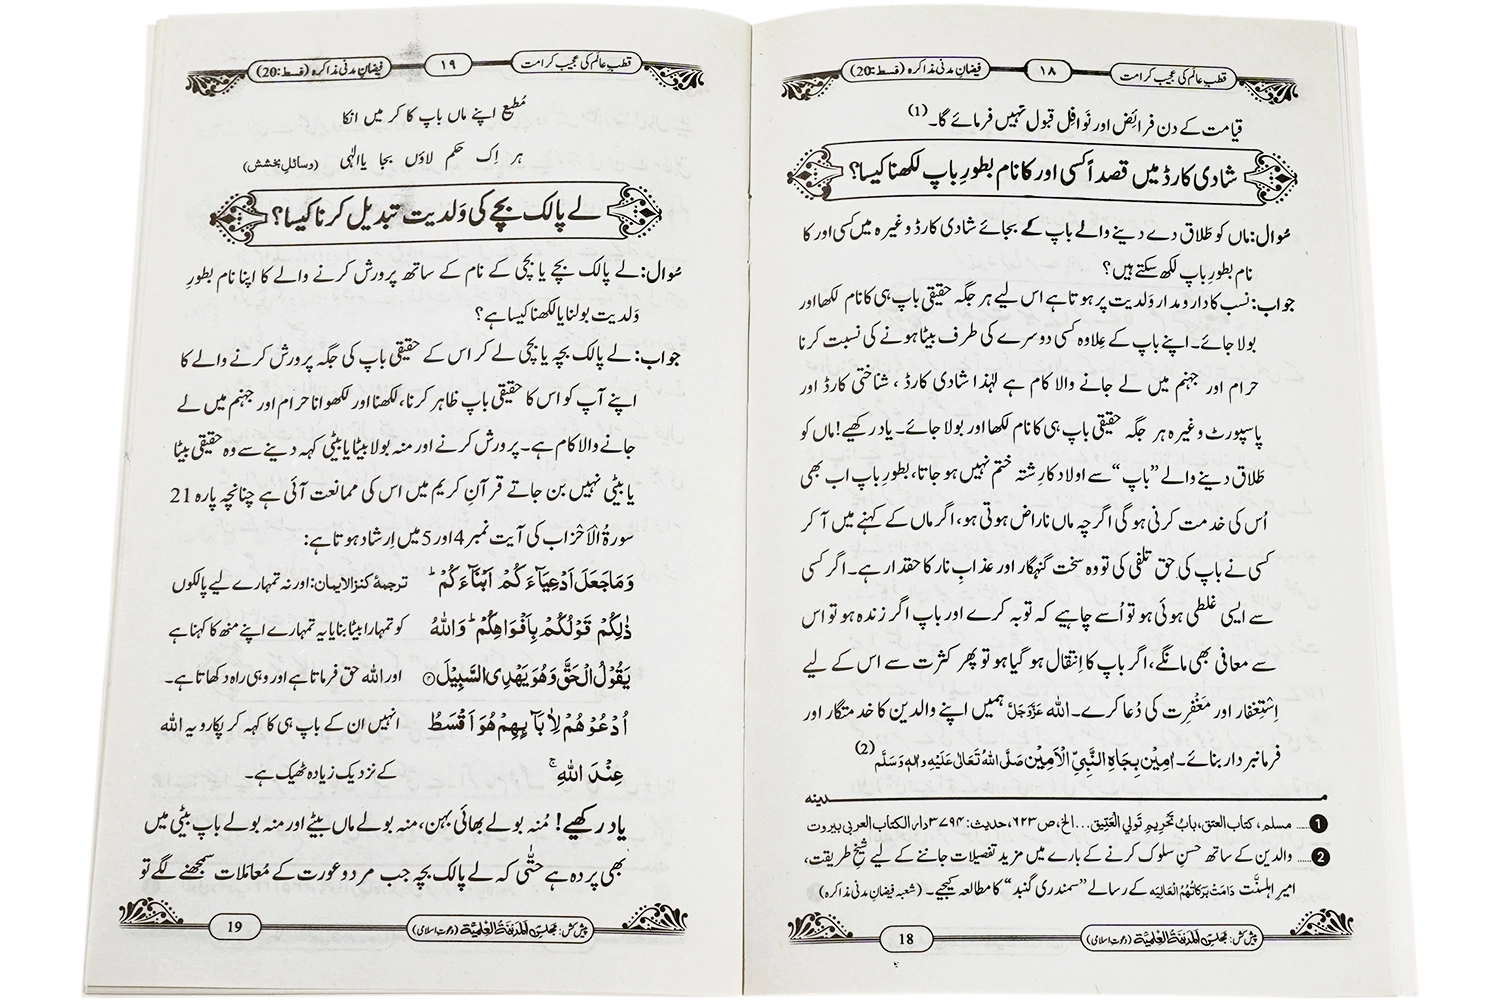 قطبِ عالَم کی عجیب کرامت
١٨
فیضانِ مدنی مذاکرہ (قسط:20)
قیامت کے دن فرائِض اور نَوافِل قبول نہیں فرمائے گا۔(1)
شادی کارڈ میں قصداً کسی اور کا نام بطورِ باپ لکھنا کیسا؟
سُوال: ماں کو طَلاق دے دینے والے باپ کے بجائے شادی کارڈ وغیرہ میں کسی اور کا
نام بطورِ باپ لکھ سکتے ہیں؟
جواب: نسب کا دار و مدار وَلدیت پر ہوتا ہے اس لیے ہر جگہ حقیقی باپ ہی کا نام لکھا اور
بولا جائے۔ اپنے باپ کے عِلاوہ کسی دوسرے کی طرف بیٹا ہونے کی نسبت کرنا
حرام اور جہنم میں لے جانے والا کام ہے لہٰذا شادی کارڈ ، شناختی کارڈ اور
پاسپورٹ وغیرہ ہر جگہ حقیقی باپ ہی کا نام لکھا اور بولا جائے۔ یاد رکھیے! ماں کو
طَلاق دینے والے ”باپ“ سے اولاد کا رِشتہ ختم نہیں ہو جاتا، بطورِ باپ اب بھی
اُس کی خدمت کرنی ہو گی اگرچہ ماں ناراض ہوتی ہو، اگر ماں کے کہنے میں آ کر
کسی نے باپ کی حق تلفی کی تو وہ سخت گنہگار اور عذابِ نار کا حقدار ہے۔ اگر کسی
سے ایسی غلطی ہوئی ہو تو اُسے چاہیے کہ توبہ کرے اور باپ اگر زندہ ہو تو اس
سے معافی بھی مانگے، اگر باپ کا اِنتقال ہو گیا ہو تو پھر کثرت سے اس کے لیے
اِسْتِغفار اور مَغْفِرت کی دُعا کرے۔ اللہ عَزَّوَجَلَّ ہمیں اپنے والدین کا خدمتگار اور
فرمانبردار بنائے۔ اٰمِیْن بِجَاہِ النَّبِیِّ الْاَمِیْن صَلَّی اللہُ تَعَالٰی عَلَیْہِ وَاٰلِہٖ وَسَلَّم (2)
مدینہ
❶ ...... مسلم، کتاب العتق، بابُ تَحْرِیمِ تَوَلِّي الْعَتِیْقِ... الخ، ص ٦٢٣، حدیث: ٣٧٩٤ دار الکتاب العربی بیروت
❷ ...... والدین کے ساتھ حسنِ سلوک کرنے کے بارے میں مزید تفصیلات جاننے کے لیے شیخِ طریقت،
امیرِ اہلسنّت دَامَتْ بَرَکاتُہُمُ الْعَالِیَہ کے رسالے ”سمندری گنبد“ کا مطالعہ کیجیے۔ (شعبہ فیضانِ مدنی مذاکرہ)
پیش کش: مجلس المدینۃ العلمیۃ (دعوتِ اسلامی)
18
قطبِ عالَم کی عجیب کرامت
١٩
فیضانِ مدنی مذاکرہ (قسط:20)
مُطیع اپنے ماں باپ کا کر میں انکا
ہر اِک حکم لاؤں بجا یاالٰہی (وسائلِ بخشش)
لے پالک بچے کی وَلدیت تبدیل کرنا کیسا؟
سُوال: لے پالک بچے یا بچی کے نام کے ساتھ پرورش کرنے والے کا اپنا نام بطورِ
وَلدیت بولنا یا لکھنا کیسا ہے؟
جواب: لے پالک بچہ یا بچی لے کر اس کے حقیقی باپ کی جگہ پرورش کرنے والے کا
اپنے آپ کو اس کا حقیقی باپ ظاہر کرنا، لکھنا اور لکھوانا حرام اور جہنم میں لے
جانے والا کام ہے۔ پرورش کرنے اور منہ بولا بیٹا یا بیٹی کہہ دینے سے وہ حقیقی بیٹا
یا بیٹی نہیں بن جاتے قرآنِ کریم میں اس کی ممانعت آئی ہے چنانچہ پارہ 21
سورۃُ الْاَحْزاب کی آیت نمبر 4 اور 5 میں اِرشاد ہوتا ہے:
وَمَا جَعَلَ اَدْعِیَآءَكُمْ اَبْنَآءَكُمْ ؕ ترجمۂ کنز الایمان: اور نہ تمہارے لیے پالکوں
ذٰلِكُمْ قَوْلُكُمْ بِاَفْوَاهِكُمْ ؕ وَاللّٰهُ کو تمہارا بیٹا بنایا یہ تمہارے اپنے منھ کا کہنا ہے
یَقُوْلُ الْحَقَّ وَهُوَ یَهْدِی السَّبِیْلَ ۝ اور اللہ حق فرماتا ہے اور وہی راہ دکھاتا ہے۔
اُدْعُوْهُمْ لِاٰبَآىِٕهِمْ هُوَ اَقْسَطُ انہیں ان کے باپ ہی کا کہہ کر پکارو یہ اللہ
عِنْدَ اللّٰهِ ۚ کے نزدیک زیادہ ٹھیک ہے۔
یاد رکھیے! مُنہ بولے بھائی بہن، منہ بولے ماں بیٹے اور منہ بولے باپ بیٹی میں
بھی پردہ ہے حتّٰی کہ لے پالک بچہ جب مرد و عورت کے مُعامَلات سمجھنے لگے تو
پیش کش: مجلس المدینۃ العلمیۃ (دعوتِ اسلامی)
19